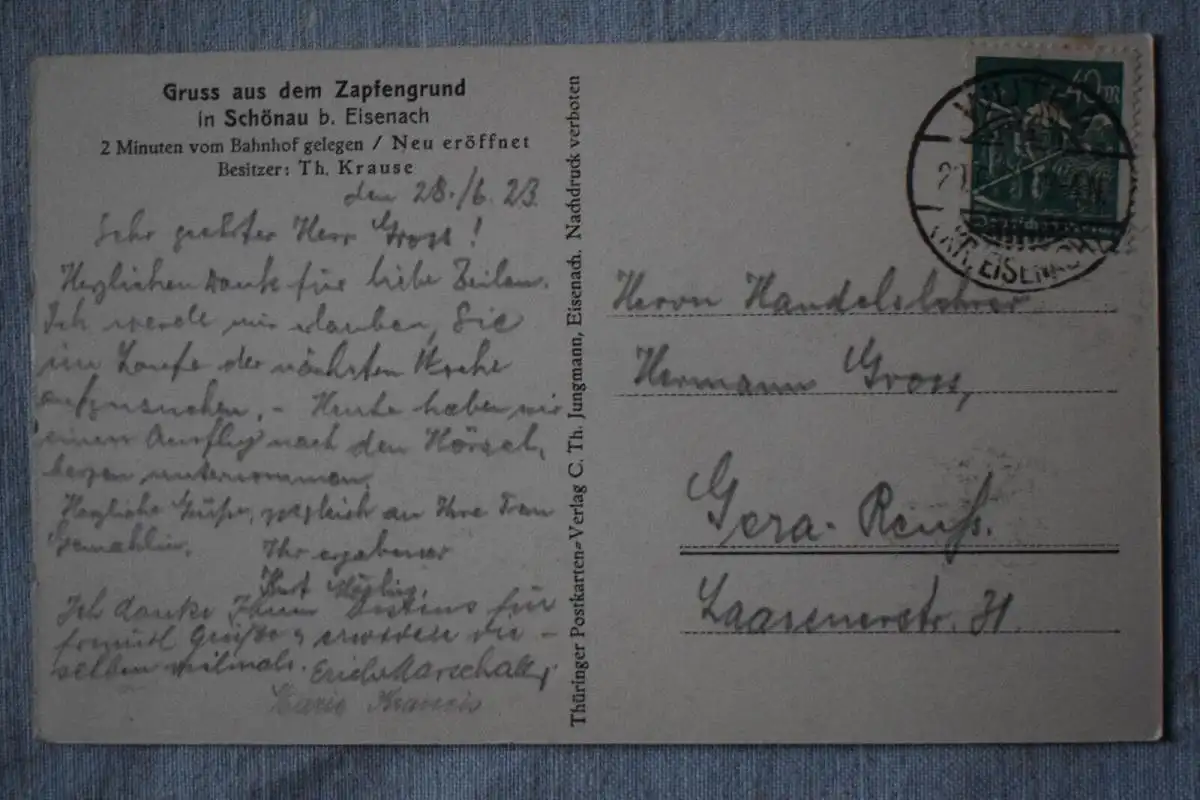 Gruss aus dem Zapfengrund
in Schönau b. Eisenach
2 Minuten vom Bahnhof gelegen / Neu eröffnet
Besitzer: Th. Krause
den 28./6.23.
Sehr geehrter Herr Gross!
Herzlichen Dank für liebe Zeilen.
Ich werde mir erlauben, Sie
im Laufe der nächsten Woche
aufzusuchen. - Heute haben wir
einen Ausflug nach den Hörsel-
bergen unternommen.
Herzliche Grüße, zugleich an Ihre Frau
Gemahlin.
Ihr ergebener
Kurt
Ich danke Ihnen bestens für
freundl. Grüße u. erwidere die-
selben vielmals. Erich Marschall
Marie
Thüringer Postkarten-Verlag C. Th. Jungmann, Eisenach. Nachdruck verboten
40 M
(KR. EISENACH)
Herrn Handelslehrer
Hermann Gross,
Gera-Reuß.
Laasenerstr. 31.